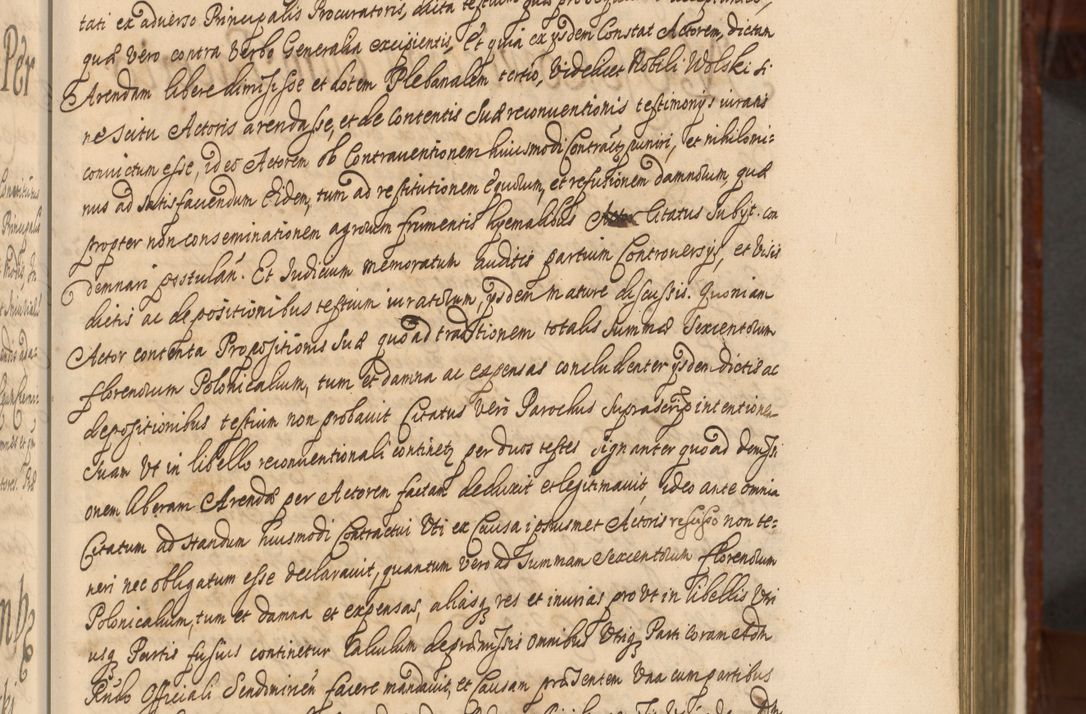 tati ex adverso Principalis Procuratoris, dicta testium
quæ vero contra Verbo Generalia excipientis, Et quia ex ijsdem Constat Actorem, dictam
Arendam libere dimisisse et dotem Plebanalem tertio, Videlicet Nobili Wolski si
ne scitu Actoris arendasse, et de Contentis Suæ reconventionis testimonijs iuratis
convictum esse, ideo Actorem ob Contraventionem huiusmodi Contractus puniri, et nihilomi:
nus ad satisfaciendum Eidem, tum ad restitutionem Equorum, et refusionem damnorum, quæ
propter non conseminationem agrorum frumentis hyemalibus Citatus Subijt. con
demnari postulan̄. Et Judicium memoratum auditis partium Controversijs, et Visis
dictis ac depositionibus testium iuratorum, ijsdem mature discussis. Quoniam
Actor contenta Propositionis Suæ quo ad traditionem totalis Summæ Sexcentorum
florenorum Polonicalium, tum et damna ac expensas concludenter ijsdem dictis ac
depositionibus testium non probavit Citatus Vero Parochus Suprascrip̄ intentionem
Suam Vt in libello reconventionali continetʒ per duos testes signanter quo ad demissi
onem liberam Arendæ per Actorem factam deduxit et legitimavit, ideo ante omnia
Citatum ad standum huiusmodi Contractui Vti ex Causa ipsusmet Actoris resciso non te:
neri nec obligatum esse declaravit, quantum vero ad Summam Sexcentorum florenorum
Polonicalium, tum et damna et expensas, aliasqʒ res et iniurias pro vt in libellis Vtri
usqʒ Partis fusius continetur Calculum de præmissis omnibus Vtriqʒ Parti coram Adm
Rn̄do Officiali Sendomirien̄ facere mandavit, et Causam præsentem Vna cum partibus